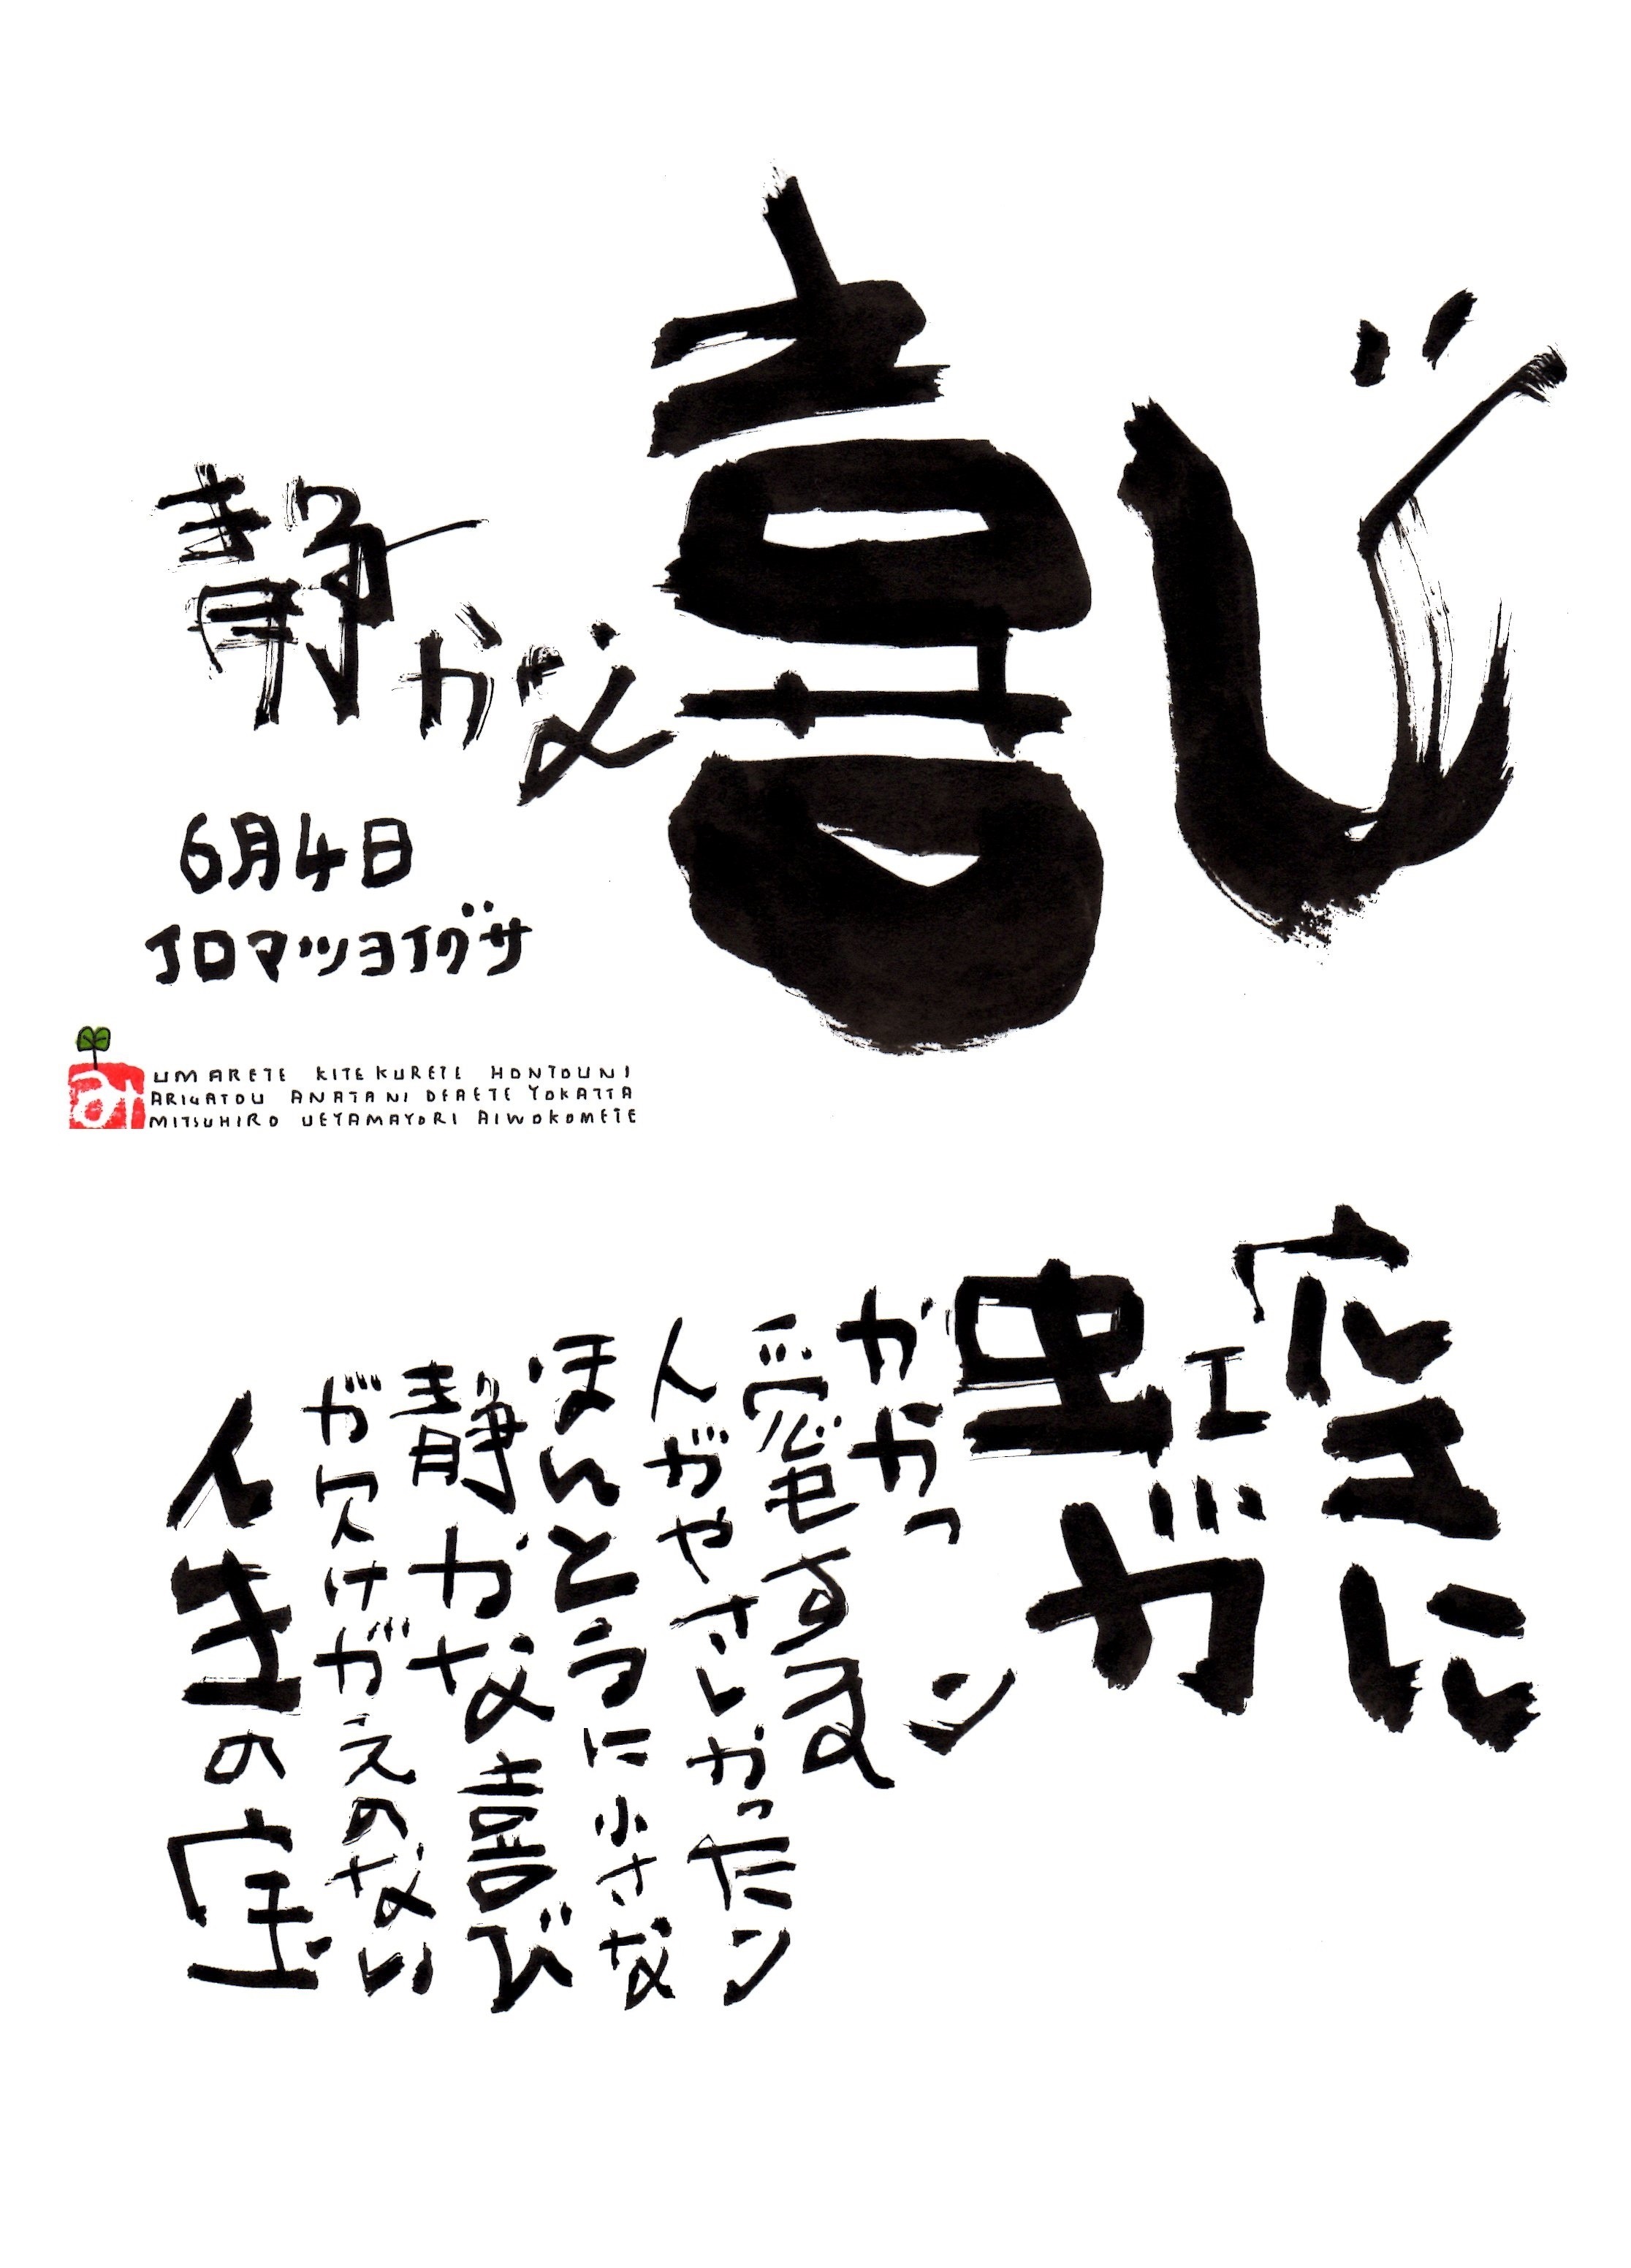 静かな喜び
6月4日
イロマツヨイグサ
ai
UMARETE KITE KURETE HONTOUNI
ARIGATOU ANATANI DEAETE YOKATTA
MITSUHIRO UEYAMAYORI AIWOKOMETE
空に
虹が
かかっり
愛する
人がやさしかったり
ほんとうに小さな
静かな喜び
が欠けがえのない
人生の宝